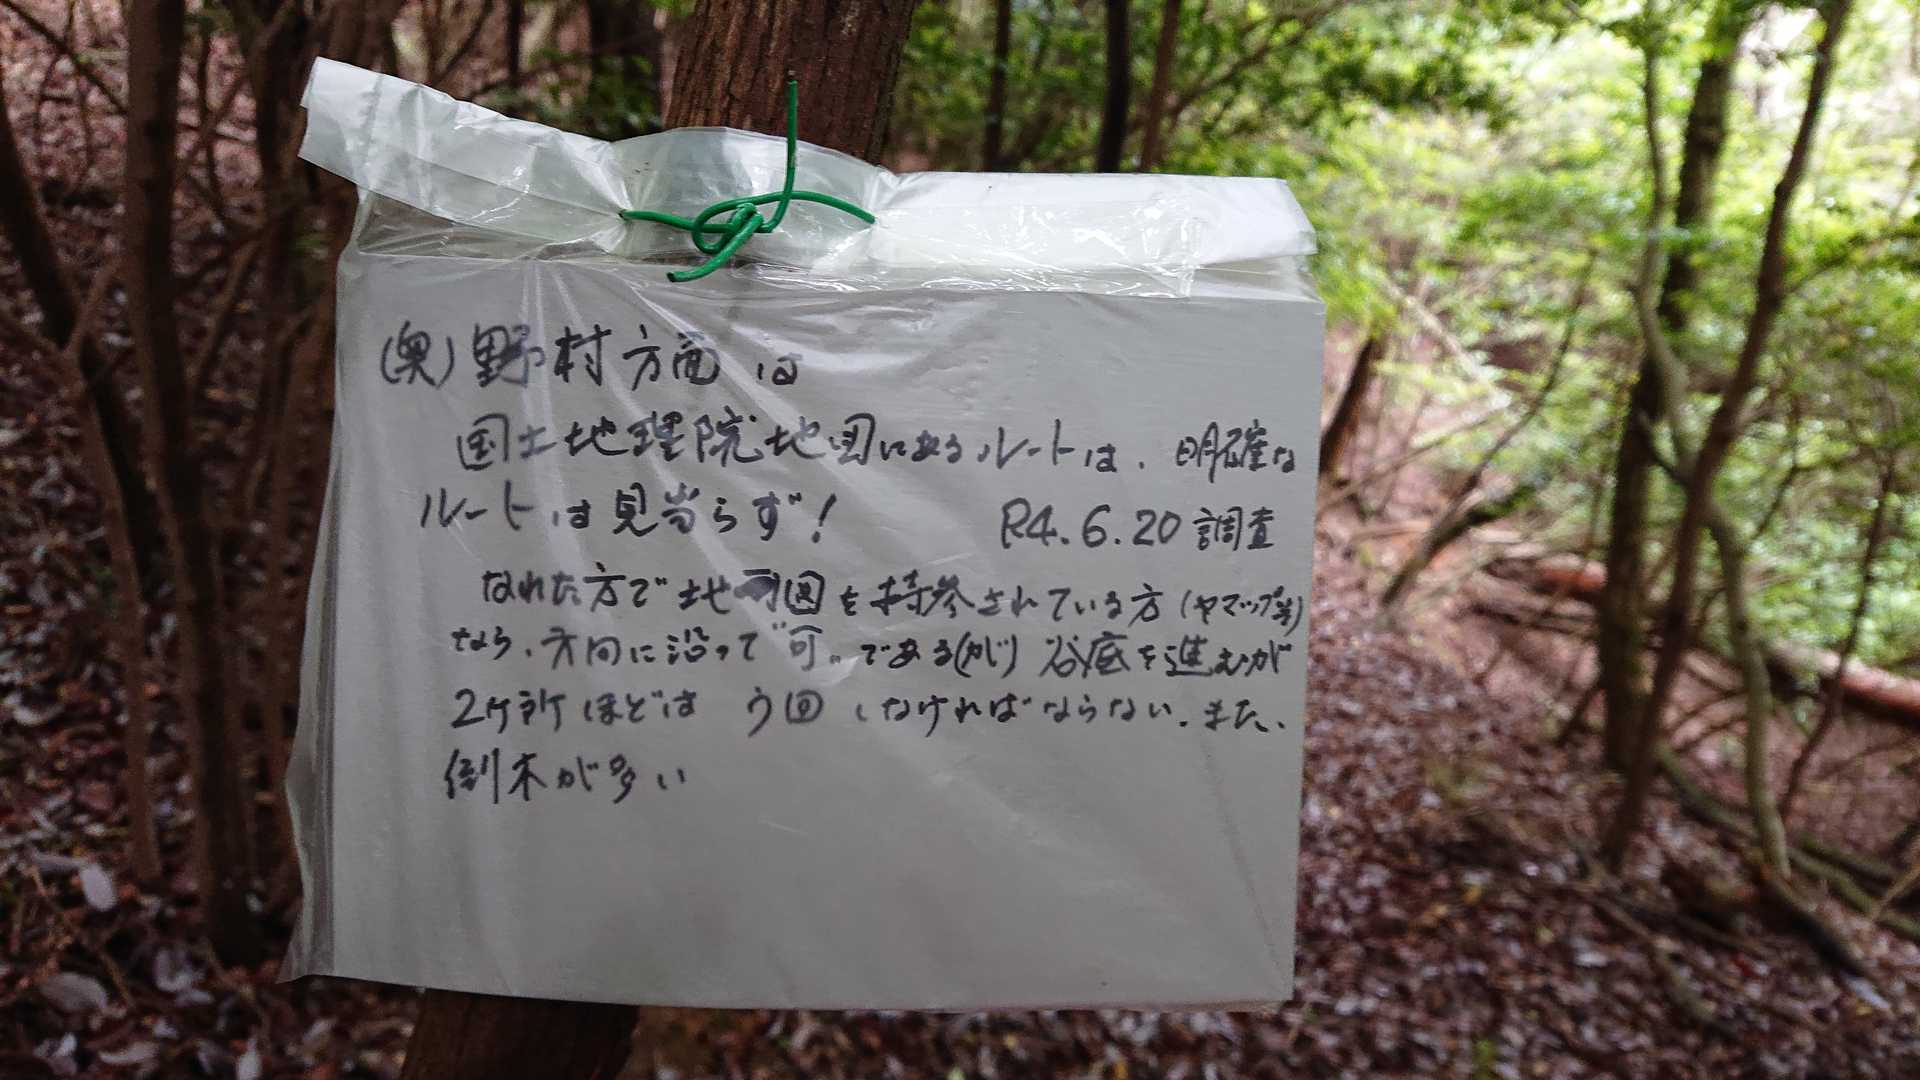 (奥)野村方面は
国土地理院地図にあるルートは、明確な
ルートは見当らず! R4.6.20 調査
なれた方で地図を持参されている方(ヤマップ等)
なら、方向に沿って"可"である(が) 谷底を進むが
2ヶ所ほどは う回しなければならない。また、
倒木が多い